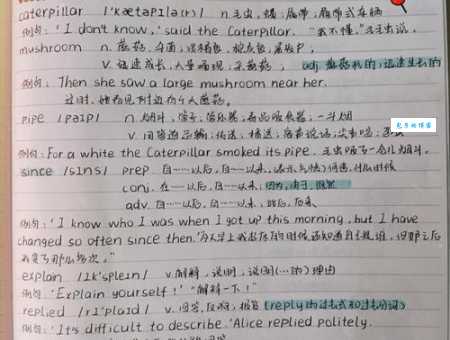 caterpillar /'kætəpɪlə(r)/ n 毛虫，蠋；履带，履带式车辆
例句：'I don't know,' said the Caterpillar. "我不懂。"毛毛虫说。
mushroom n. 蘑菇，伞菌，
v. 迅速成长，大量涌现，采蘑菇， adj 蘑菇状的；迅速生长的
例句：Then she saw a large mushroom near her.
这时，她看见附近有个大蘑菇。
pipe /paɪp/ n 烟斗，管子，管乐器，一斗烟
v. 用管道运输；传送；播送；
免多咖博客
例句：For a white the Caterpillar smoked its pipe.
since /sɪns/ prep 自……以后，自……以来
conj. 在……以后，自……以来；因为，由于，既然
adv. 自……以后，自……以来；此后，后来
例句：'I know who I was when I got up this morning, but I have
changed so often since then.'
我变了那么多次。"
explain /ɪk'spleɪn/ v. 解释，说明，说明(…的)理由
例句：'Explain yourself!' "解释一下！"
replied /rɪ'plaɪd/ v. 回答，反响，报复(reply的过去式和过去分词)
例句：'It's difficult to describe.' Alice replied politely.